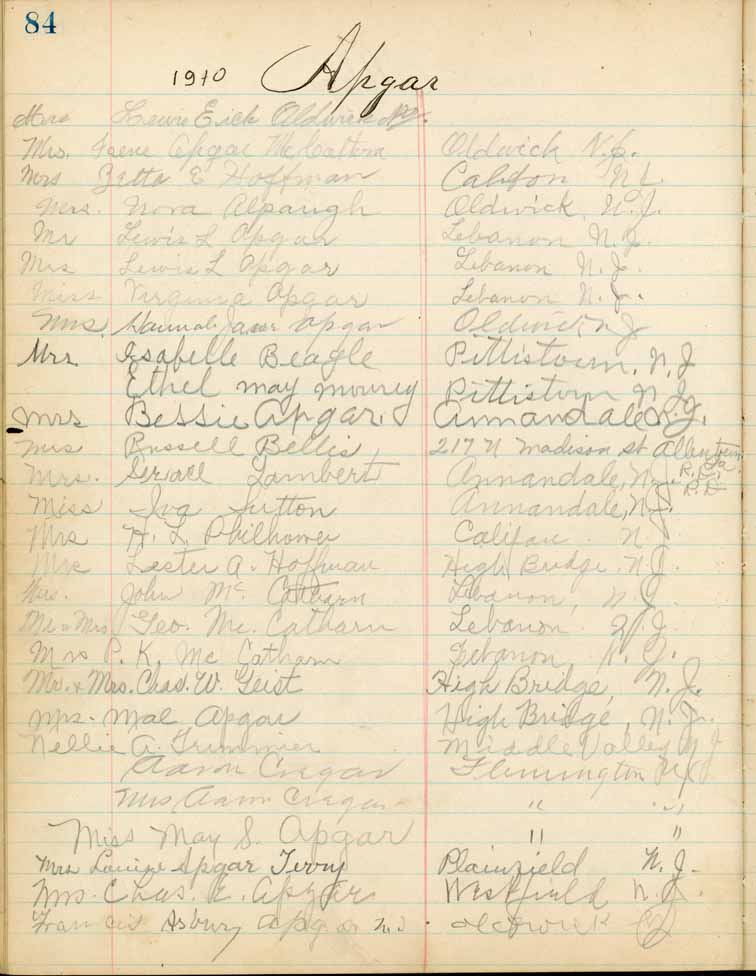 84
1910 Apgar
Mrs Lewis Eick Oldwick N.J.
Mrs. Irene Apgar McCatharn Oldwick N.J.
Mrs Zetta E Hoffman Califon N.J.
Mrs. Nora Alpaugh Oldwick, N.J.
Mr Lewis L Apgar Lebanon N.J.
Mrs Lewis L Apgar Lebanon N.J.
Miss Virginia Apgar Lebanon N.J.
Mrs. Hannah Apgar Oldwick N J
Mrs. Isabelle Beagle Pittstown, N, J
Ethel may mourey Pittstown N J
Mrs Bessie Apgar. Annandale N.J.
Mrs Russell Bellis, 217 N Madison st Allentown Pa.
Mrs. Lambert Annandale, N.J. R.D.
Miss Iva Sutton Annandale, N.J. R.D
Mrs H. L. Philhower Califon N J
Mrs Lester A. Hoffman High Bridge N.J.
Mrs. John Mc Catharn Lebanon, N.J.
Mr & Mrs Geo. Mc. Catharn Lebanon N J.
Mrs P. K. Mc Catharn Lebanon N. J.
Mr. & Mrs. Chas. W. Geist High Bridge, N.J.
Mrs. Mae Apgar High Bridge, N.J.
Nellie A. Trimmer Middle Valley N J
Aaron Cregar Flemington N J
Mrs Aaron Cregar " "
Miss May S. Apgar " "
Mrs Louise Apgar Terry Plainfield N.J.
Mrs. Chas. E. Apgar Westfield N.J.
Francis Asbury Apgar N.J. Oldwick